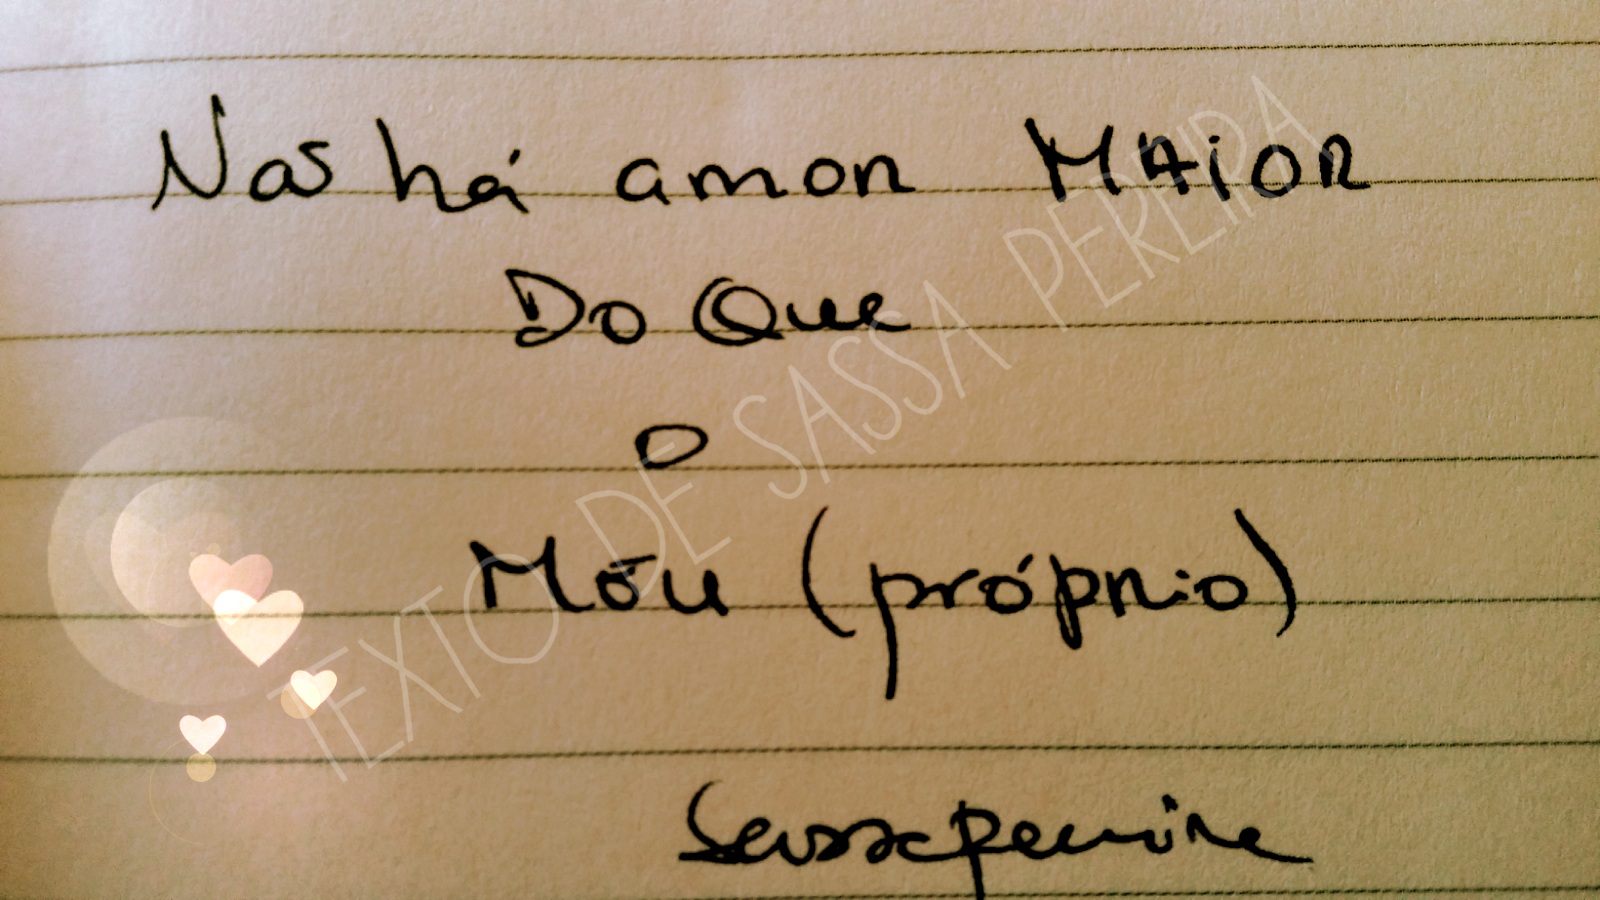 Não há amor MAIOR
Do Que
O
Meu (próprio)
Sassapereira
TEXTO DE SASSA PEREIRA